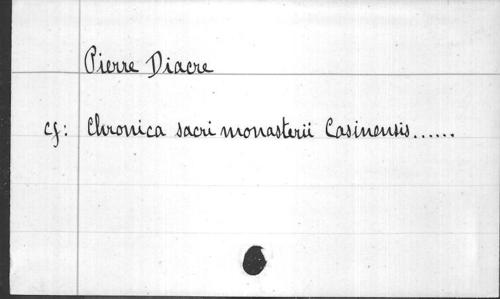 Pierre Diacre
cf: Chronica sacri monasterii Casinensis......